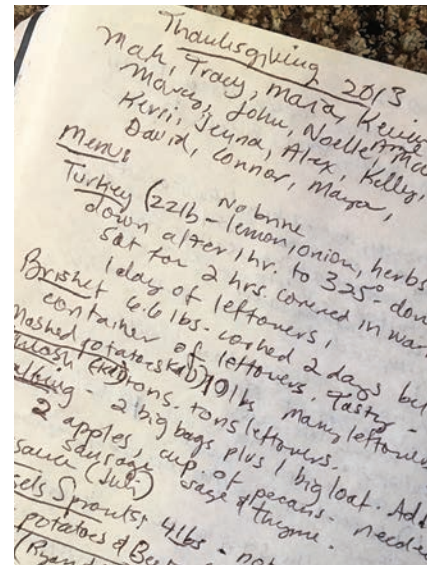 Thanksgiving 2013
Mah, Tracy, Mara, Kevin
Marco, John, Noelle,
Kerri, Jenna, Alex, Kelly,
David, Connor, Maya,
Menu:
No brine
Turkey (22lb - lemon, onion, herbs
down after 1hr. to 325° - don
Sat for 2 hrs. covered in war
1 day of leftovers.
Brisket 6.6 lbs. cooked 2 days be
container of leftovers. Tasty -
Mashed potatoes 10 lbs many leftover
tons. tons leftovers.
- 2 big bags plus 1 big loaf. Add
2 apples, cup of pecans - needed
sausage sage & thyme.
sauce
sels Sprouts, 4lbs - not
potatoes &
(Ryan